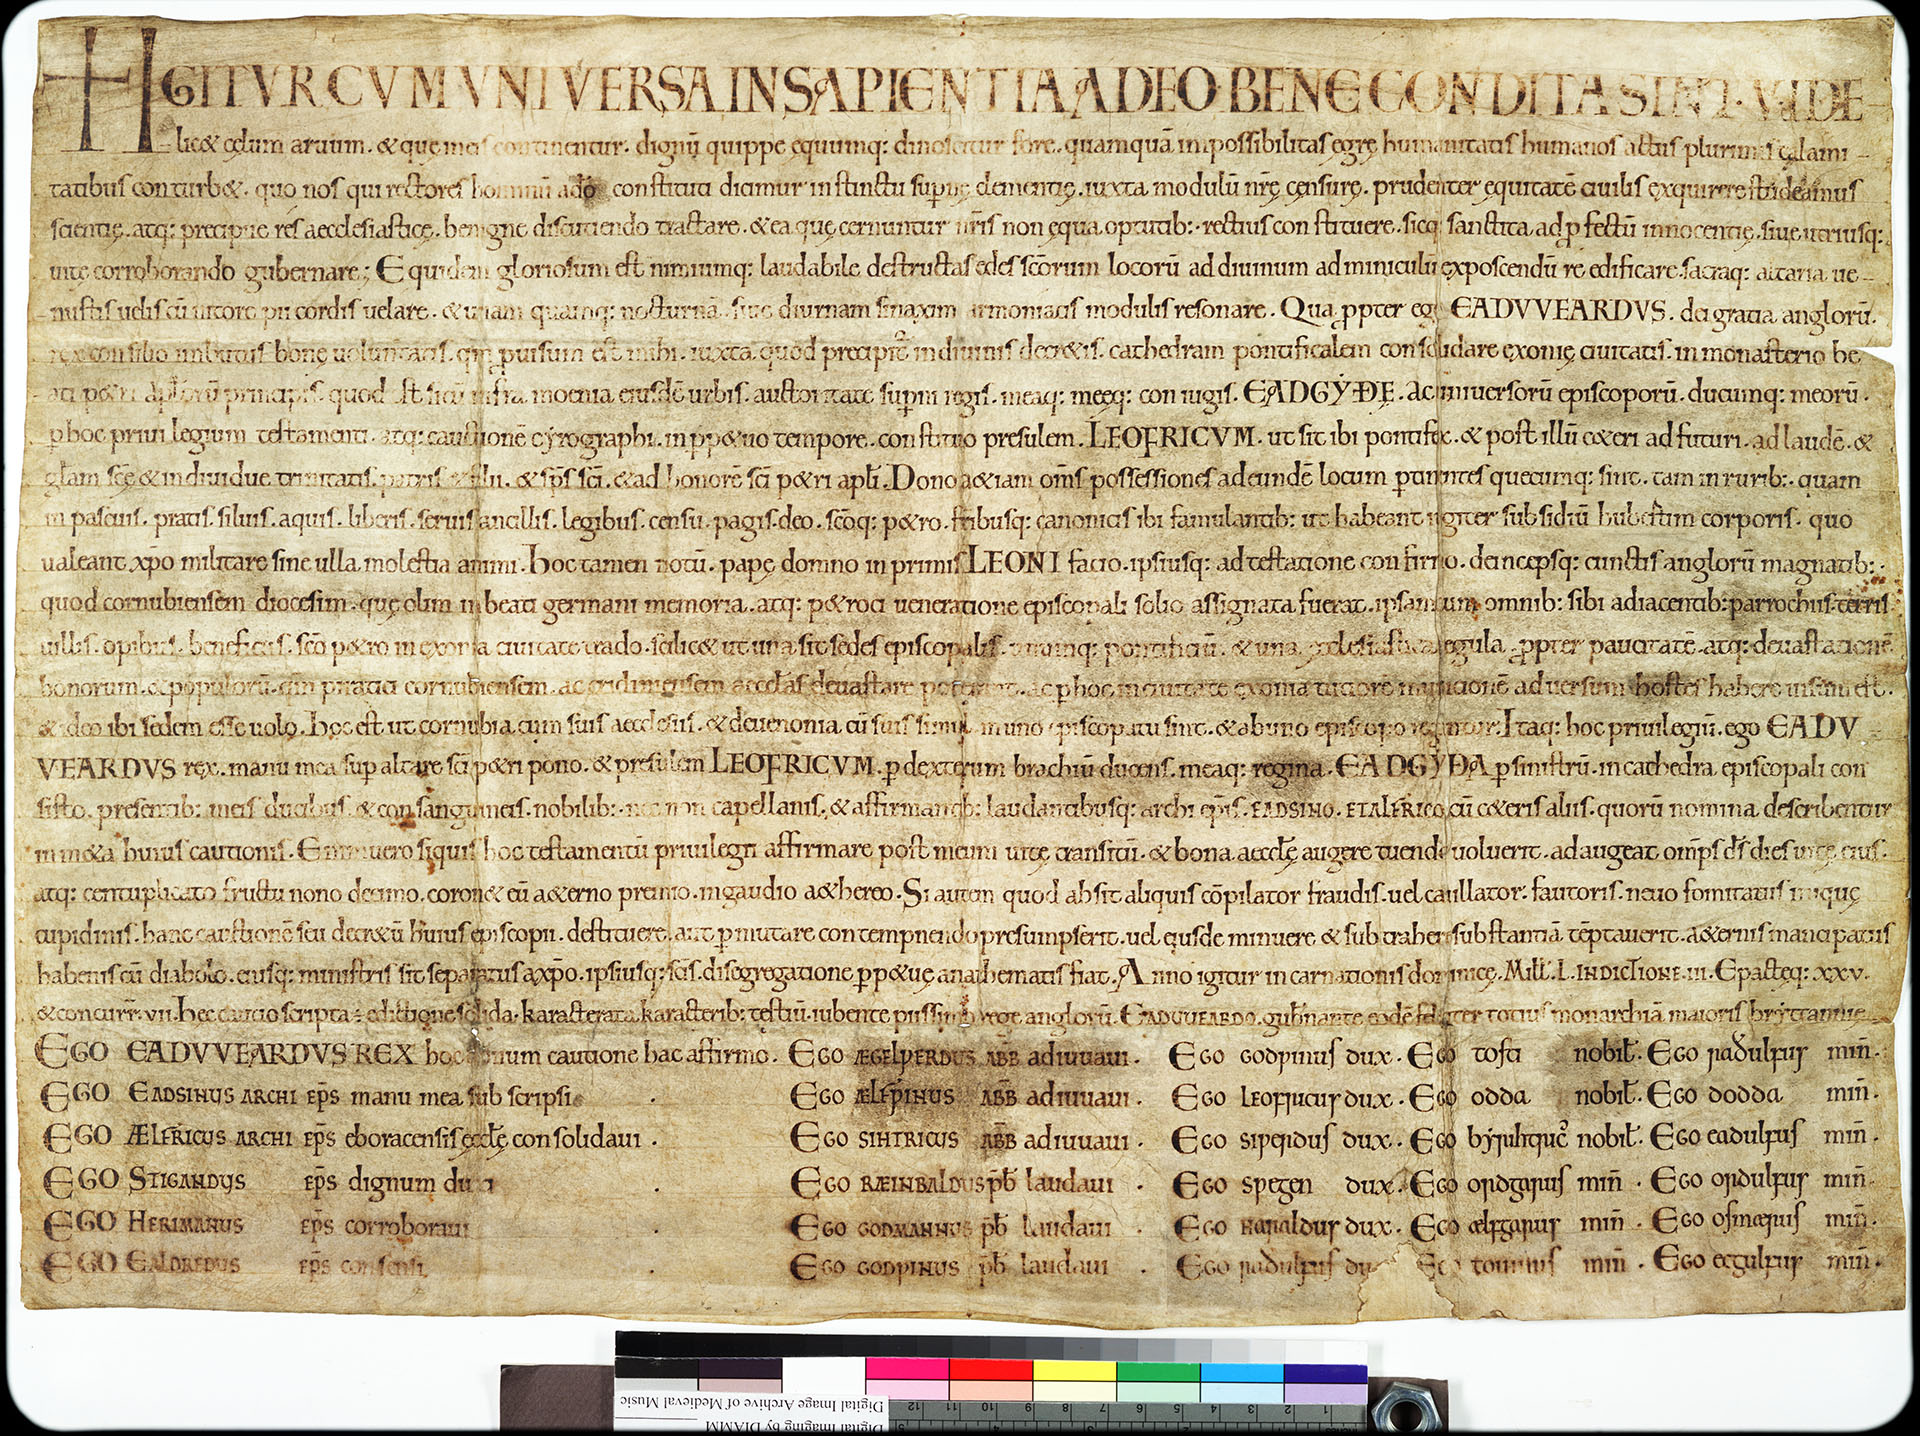 IGITVR CVM VNIVERSA IN SAPIENTIA A DEO BENE CONDITA SINT. VIDE
lic& cęlum aruum. & quę in eis continentur. dignū quippe ęquumq: dinoscitur fore. quamquā impossibilitas egrę humanitatis humanos actus plurimis calami
tatibus conturb&. quo nos qui rectores hominū a dō constituti dicimur instinctu sup̄nę clementię. iuxta modulū nr̄ę censurę. prudenter equitatē ciuilis exquirere studeamus
scientię. atq: precipue res aecclesiasticę. benigne discutiendo tractare. & ea quę cernuntur nr̄is non ęqua optutib: rectius constituere. sicq: sanctita ad ꝓfectū innocentię. siue utriusq:
uitę corroborando gubernare; Equidem gloriosum est nimiumq: laudabile destructas sedes sc̄orum locorū ad diuinum adminiculū exposcendū reedificare. sacraq: altaria ue
nustis uelis cū uitore pii cordis uelare. & unam quamq: nocturnā siue diurnam sinaxim armoniacis modulis resonare. Qua ꝓpter ego EADVVEARDVS. dei gratia anglorū.
rex consilio imbutus bonę uoluntatis. qm̄ ꝓuisum est mihi. iuxta quod precipit̄ in diuinis decr&is. cathedram pontificalem consolidare exonię ciuitatis. in monasterio be
ati p&ri aplōrū principis. quod est sitū infra moenia eiusdē urbis. auctoritate sup̄ni regis. meaq: meęq: coniugis. EADGYÐE. ac uniuersorū episcoporū. ducumq: meorū.
ꝑ hoc priuilegium testamenti. atq: cauctionē cyrographi. in ꝑp&uo tempore. constituo presulem. LEOFRICVM. ut sit ibi pontifex. & post illū c&eri adfuturi. ad laudē. &
glām scę & indiuidue trinitatis. patris & filii. & sp̄s sc̄i. & ad honorē sc̄i p&ri apl̄i. Dono &iam om̄s possessiones ad eundē locum ꝑtinentes quecumq: sint. tam in rurib: quam
in pascuis. pratis. siluis. aquis. liberis. seruis ancillis. legibus. censu. pagis. deo. sc̄oq: p&ro. fr̄ibusq: canonicis ibi famulantib: ut habeant iugiter subsidiū corporis. quo
ualeant xp̄o militare sine ulla molestia animi. Hoc tamen notū. papę domno in primis LEONI facio. ipsiusq: adtestatione confirmo. deincepsq: cunctis anglorū magnatib:
quod cornubiensem diocesim. quę olim in beati germani memoria. atq: p&roci ueneratione episcopali solio assignata fuerat. ipsam cum omnib: sibi adiacentib: parrochiis. terris
uillis. opibus. beneficiis. sc̄o p&ro in exonia ciuitate trado. scilic& ut una sit sedes episcopalis. unumq: pontificiū. & una ęcclesiastica regula. ꝓpter paucitatē. atq: deuastationē
bonorum. & populorū. qm̄ piratici cornubiensem. ac cridiensem aecclas̄ deuastare poterant. ac ꝑ hoc in ciuitate exonia tutiorē munitionē aduersum hostes habere uisum est.
& ideo ibi sedem esse uolo. Hoc est ut cornubia cum suis aecclesiis. & deuenonia cū suis simul in uno episcopatu sint. & ab uno episcopo regantur. Itaq: hoc priuilegiū. ego EADV
VEARDVS rex. manu mea sup altare sc̄i p&ri pono. & presulem LEOFRICVM. ꝑ dexterum brachiū ducens. meaq: regina. EADGYÐA ꝑ sinistrū. in cathedra episcopali con
sisto. presentib: meis ducibus. & consanguineis. nobilib: nec non capellanis. & affirmantib: laudantibusq: archi ep̄is. EADSINO. ET ALFRICO cū c&eris aliis. quorū nomina describentur
in m&a huius cautionis. Enimuero siquis hoc testamentū priuilegii affirmare post meum uitę transitū. & bona aecclę̄ augere uoluerit. adaugeat om̄ps d̄s dies uitę eius.
atq: centuplicato fructu nono decimo. coron& eū a&erno premio. in gaudio a&hereo. Si autem quod absit aliquis cōpilator fraudis. uel cauillator. fautoris. neuo fomitatus iniquę
cupidinis. hanc cauctionē seu decr&ū huius episcopii. destituere. aut ꝑmutare contempnendo presumpserit. uel eiusdē minuere & subtrahere substantiā tēptauerit. a&ernis mancipatus
habenis cū diabolo. eiusq: ministris sit separatus a xp̄o. ipsiusq: sc̄is. disegregatione ꝑp&uę anathematis fiat. Anno igitur incarnationis dominicę. Mill̄. L. INDICTIONE. III. Epactęq: XXV.
& concurr̄. VII. Hec cautio scripta ÷ edictione solida. karacterata karacterib: testiū. iubente piissimo rege anglorū. EADVVEARDO. gub̄nante eodē feliciter totius monarchiā maioris bryttannię
EGO EADVVEARDVS REX hoc donum cautione hac affirmo. EGO ÆGELǷERDUS ABB adiuuaui. EGO GODǷINUS dux. EGO tosti nobil̄. EGO raðulfus min̄.
EGO EADSINUS ARCHI EP̄S manu mea subscripsi. EGO ÆLFǷINUS ABB adiuuaui. EGO LEOFRICUS dux. EGO odda nobil̄. EGO dodda min̄.
EGO ÆLFRICUS ARCHI EP̄S eboracensis ęcclę̄ consolidaui. EGO SIHTRICUS ABB adiuuaui. EGO SIǷERDUS dux. EGO byrihtric̄ nobil̄. EGO eadulfus min̄.
EGO STIGANDUS EP̄S dignum duxi. EGO RÆINBALDUS p̄b laudaui. EGO SǷEGEN dux. EGO ordgarus min̄. EGO ordulfus min̄.
EGO HERIMANUS EP̄S corroboraui. EGO GODMANNUS p̄b laudaui. EGO HARALDUS dux. EGO ælfgarus min̄. EGO osmærus min̄.
EGO EALDREDUS EP̄S consensi. EGO GODǷINUS p̄b laudaui. EGO raðulfus dux. EGO min̄. EGO ecgulfus min̄.
Digital Image Archive of Medieval Music
Digital Imaging by DIAMM